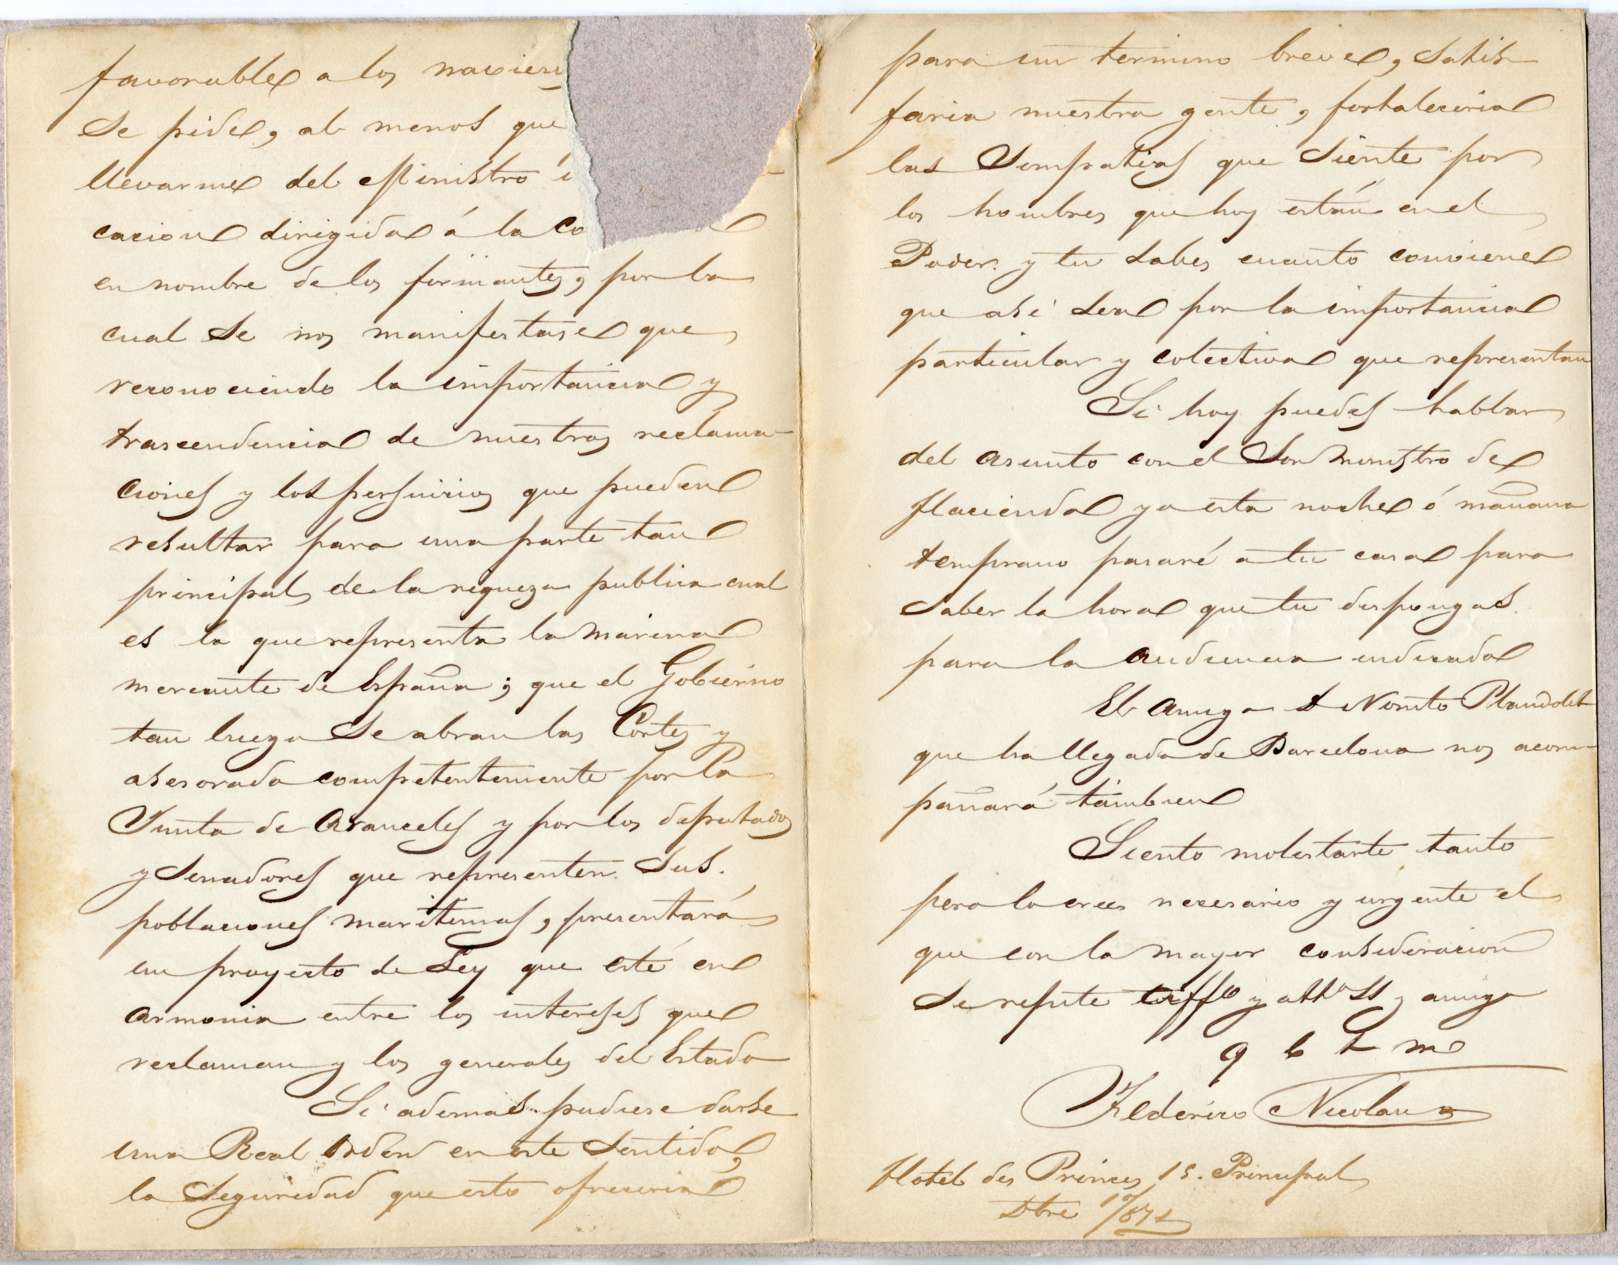 favorable a los navier
se pide, al menos que
llevarme del Ministro
cacion dirigida á la Co
en nombre de los firmantes, por la
cual se nos manifestase que
reconociendo la importancia y
trascendencia de nuestras reclama-
ciones y los perjuicios que pueden
resultar para una parte tan
principal de la riqueza publica cual
es la que representa la marina
mercante de España; que el Gobierno
tan luego se abran las Cortes y
asesorado competentemente por la
Junta de Aranceles y por los diputados
y Senadores que representen sus
poblaciones maritimas, presentará
un proyecto de Ley que esté en
armonia entre los intereses que
reclaman y los generales del Estado
Si ademas pudiese darse
una Real Orden en este sentido,
la seguridad que esto ofreceria
para un termino breve, satis-
faria nuestra gente, fortaleceria
las Simpatias que siente por
los hombres que hoy están en el
Poder. y tu sabes cuanto conviene
que asi sea por la importancia
particular y colectiva que representan
Si hoy puedes hablar
del asunto con el Sor Ministro de
Hacienda ya esta noche ó mañana
temprano pasaré a tu casa para
saber la hora que tu dispongas.
para la audiencia indicada
El Amigo D Nonito Plandolit
que ha llegado de Barcelona nos acom-
pañará tambien
Siento molestarte tanto
pero lo cree necesario y urgente el
que con la mayor consideracion
se repite y atto SS y amigo
q b t m
Federico Nicolau
Hotel des Princes 15. Principal
Dbre 1º/871